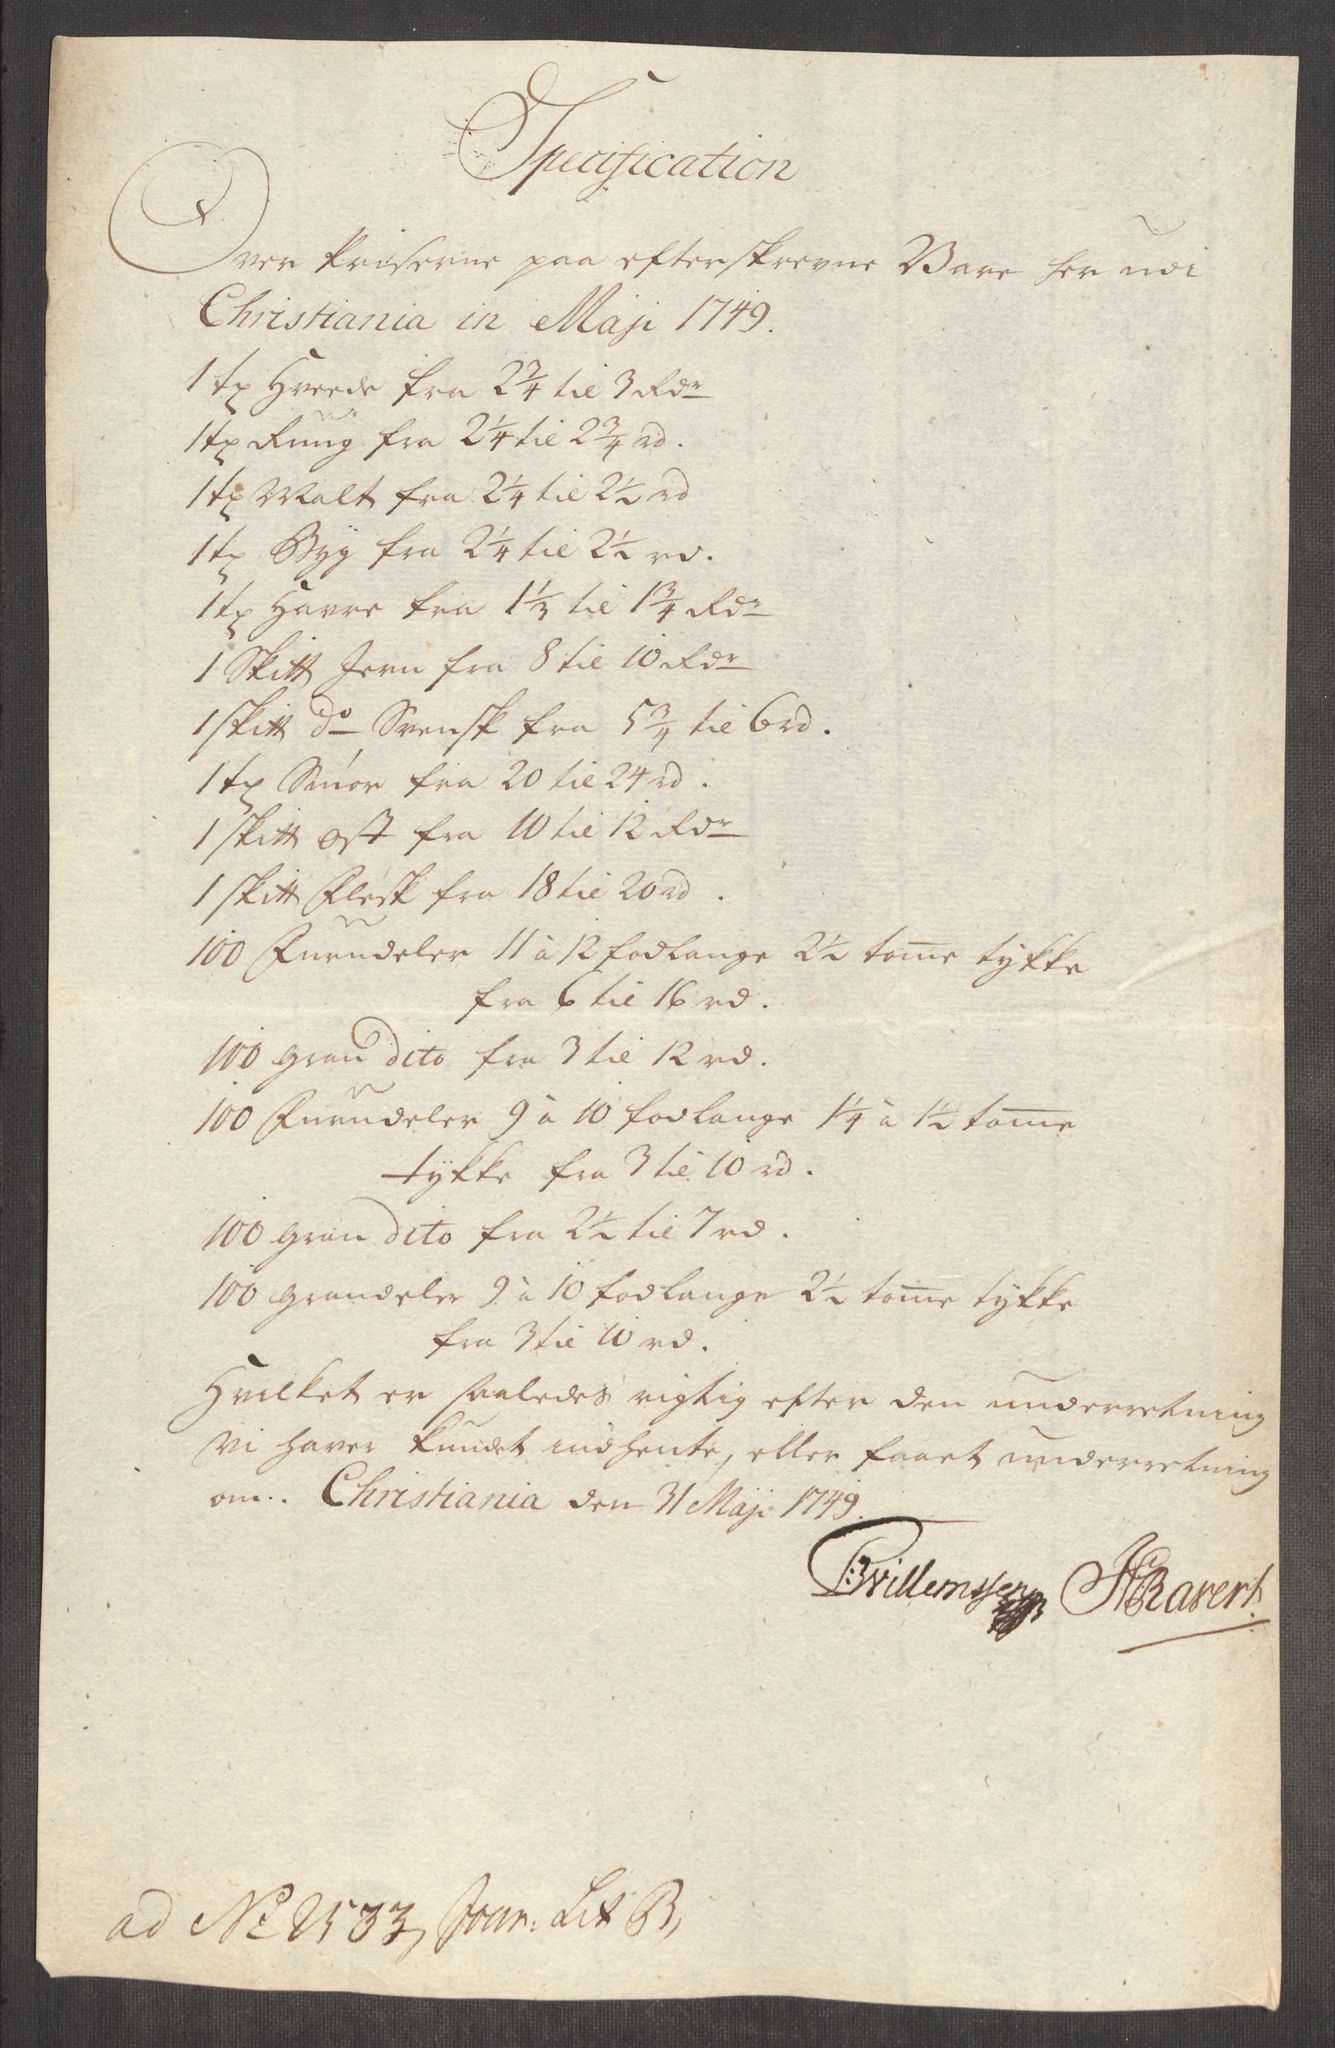 Specification
Over Priserne paa efterskrevne Vare her udi
Christiania in Maji 1749.
1 tz Hveede fra 2¾ til 3 Rdr
1 tz Rug fra 2¼ til 2¾ rd.
1 tz Malt fra 2¼ til 2½ rd
1 tz Byg fra 2¼ til 2½ rd.
1 tz Havre fra 1⅓ til 1¾ Rdr
1 Skitt Jern fra 8 til 10 Rdr
1 skitt do Svensk fra 5¾ til 6 rd.
1 tz Smör fra 20 til 24 rd.
1 skitt ost fra 10 til 12 Rdr
1 skitt Flesk fra 18 til 20 rd.
100 Furudeler 11 à 12 fod lange 2½ tome tykke
fra 6 til 16 rd.
100 gran dito fra 3 til 12 rd.
100 Furudeler 9 à 10 fod lange 1¼ à 1½ tome
tykke fra 3 til 10 rd.
100 gran dito fra 2½ til 7 rd.
100 grandeler 9 à 10 fod lange 2½ tome tykke
fra 3 til 10 rd.
Hvilket er saaledes rigtig efter den underretning
vi haver kundet indhente, eller faaet underretning
om. Christiania den 31 Maji 1749.
Bvillemssen HRavert.
ad No 2533 Jour: Lit B,